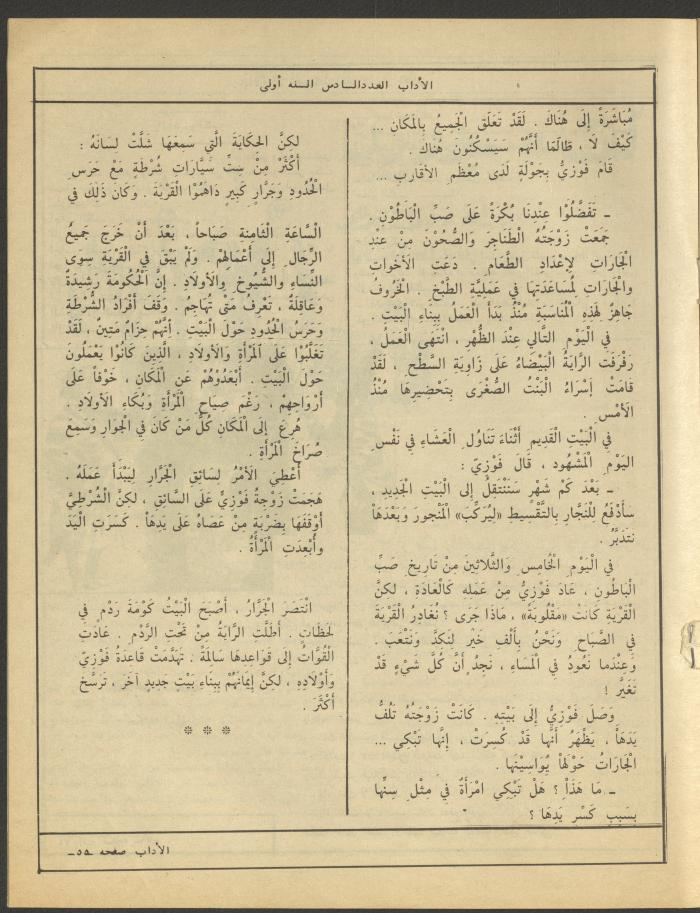 الآداب العدد السادس السنه أولى
مُبَاشَرَةً إِلَى هُنَاكَ . لَقَدْ تَعَلَّقَ الْجَمِيعُ بِالْمَكَانِ ...
كَيْفَ لَا ، طَالَمَا أَنَّهُمْ سَيَسْكُنُونَ هُنَاكَ .
قَامَ فَوْزِيٌّ بِجَوْلَةٍ لَدَى مُعْظَمِ الأَقَارِبِ ...
ـ تَفَضَّلُوْا عِنْدَنَا بُكْرَةً عَلَى صَبِّ الْبَاطُونِ .
جَمَعَتْ زَوْجَتُهُ الْطَنَاجِرَ وَالصُّحُوْنَ مِنْ عِنْدِ
الْجَارَاتِ لِإِعْدَادِ الطَّعَامِ . دَعَتِ الأَخَوَاتِ
وَالْجَارَاتِ لِمُسَاعَدَتِهَا فِي عَمَلِيَّةِ الطَّبْخِ . الْخَرُوفُ
جَاهِزٌ لِهَذِهِ الْمُنَاسَبَةِ مُنْذُ بَدَأَ الْعَمَلُ بِبِنَاءِ الْبَيْتِ .
فِي الْيَوْمِ التَّالِي عِنْدَ الظُّهْرِ ، انْتَهَى الْعَمَلُ ،
رَفْرَفَتِ الرَّايَةُ الْبَيْضَاءُ عَلَى زَاوِيَةِ السَّطْحِ ، لَقَدْ
قَامَتْ إِسْرَاءُ الْبِنْتُ الصُّغْرَى بِتَحْضِيرِهَا مُنْذُ
الأَمْسِ .
فِي الْبَيْتِ الْقَدِيمِ أَثْنَاءَ تَنَاوُلِ الْعَشَاءِ فِي نَفْسِ
الْيَوْمِ الْمَشْهُودِ ، قَالَ فَوْزِيٌّ :
ـ بَعْدَ كَمْ شَهْرٍ سَنَنْتَقِلُ إِلَى الْبَيْتِ الْجَدِيدِ ،
سَأَدْفَعُ لِلْنَجَّارِ بِالتَّقْسِيطِ «لِيُرَكِّبَ» الْمَنْجُورَ وَبَعْدَهَا
نَتَدَبَّرُ .
فِي الْيَوْمِ الْخَامِسِ وَالثَّلَاثِينَ مِنْ تَارِيخِ صَبِّ
الْبَاطُونِ ، عَادَ فَوْزِيٌّ مِنْ عَمَلِهِ كَالْعَادَةِ ، لَكِنَّ
الْقَرْيَةَ كَانَتْ «مَقْلُوبَةً» ، مَاذَا جَرَى ؟ نُغَادِرُ الْقَرْيَةَ
فِي الصَّبَاحِ وَنَحْنُ بِأَلْفِ خَيْرٍ لِنَكِدَّ وَنَتْعَبَ .
وَعِنْدَما نَعُودُ فِي الْمَسَاءِ ، نَجِدُ أَنَّ كُلَّ شَيْءٍ قَدْ
تَغَيَّرَ !
وَصَلَ فَوْزِيٌّ إِلَى بَيْتِهِ . كَانَتْ زَوْجَتُهُ تَلُفُّ
يَدَهَا ، يَظْهَرُ أَنَّها قَدْ كُسِرَتْ ، إِنَّها تَبْكِي ...
الْجَارَاتُ حَوْلَهَا يُوَاسِيْنَها .
ـ مَا هَذَا ؟ هَلْ تَبْكِي امْرَأَةٌ فِي مِثْلِ سِنِّها
بِسَبَبِ كَسْرِ يَدِهَا ؟
لَكِنَّ الحِكَايَةَ الَّتِي سَمِعَهَا شَلَّتْ لِسَانَهُ :
أَكْثَرُ مِنْ سِتِّ سَيَّارَاتِ شُرْطَةٍ مَعْ حَرَسِ
الْحُدُودِ وَجَرَّارٍ كَبِيرٍ دَاهَمُوْا الْقَرْيَةَ . وَكَانَ ذَلِكَ فِي
الْسَّاعَةِ الْثَّامِنَةِ صَبَاحاً ، بَعْدَ أَنْ خَرَجَ جَمِيعُ
الرِّجَالِ إِلَى أَعْمَالِهِمْ . وَلَمْ يَبْقَ فِي الْقَرْيَةِ سِوَى
النِّسَاءِ وَالشُّيُوخِ وَالأَوْلَادِ . إِنَّ الْحُكُومَةَ رَشِيدَةٌ
وَعَاقِلَةٌ ، تَعْرِفُ مَتَى تُهَاجِمُ . وَقَفَ أَفْرَادُ الشُّرْطَةِ
وَحَرَسُ الْحُدُودِ حَوْلَ الْبَيْتِ . إِنَّهُمْ حِزَامٌ مَتِينٌ ، لَقَدْ
تَغَلَّبُوْا عَلَى الْمَرْأَةِ وَالأَوْلَادِ ، الَّذِينَ كَانُوْا يَعْمَلُونَ
حَوْلَ الْبَيْتِ . أَبْعَدُوْهُمْ عَنِ الْمَكَانِ ، خَوْفاً عَلَى
أَرْوَاحِهِمْ ، رَغْمَ صِيَاحِ الْمَرْأَةِ وَبُكَاءِ الأَوْلَادِ .
هُرِعَ إِلَى الْمَكَانِ كُلُّ مَنْ كَانَ فِي الْجَوَارِ وَسَمِعَ
صُرَاخَ الْمَرْأَةِ .
أُعْطِيَ الأَمْرُ لِسَائِقِ الْجَرَّارِ لِيَبْدَأَ عَمَلَهُ .
هَجَمَتْ زَوْجَةُ فَوْزِيٍّ عَلَى السَّائِقِ ، لَكِنَّ الْشُرْطِيَّ
أَوْقَفَهَا بِضَرْبَةٍ مِنْ عَصَاهُ عَلَى يَدِهَا . كُسِرَتِ الْيَدُ
وأُبْعِدَتِ الْمَرْأَةُ .
انْتَصَرَ الْجَرَّارُ ، أَصْبَحَ الْبَيْتُ كَوْمَةَ رَدْمٍ فِي
لَحَظَاتٍ . أَطَلَّتِ الرَّايَةُ مِنْ تَحْتِ الرَّدْمِ . عَادَتِ
الْقُوَّاتُ إِلَى قَوَاعِدِهَا سَالِمَةً . تَهَدَّمَتْ قَاعِدَةُ فَوْزِيٍّ
وَأَوْلَادِهِ ، لَكِنَّ إِيمَانَهُمْ بِبِنَاءِ بَيْتٍ جَدِيدٍ آخَرَ ، تَرَسَّخَ
أَكْثَرَ .
* * *
الآداب صفحه ـ٥٥ـ